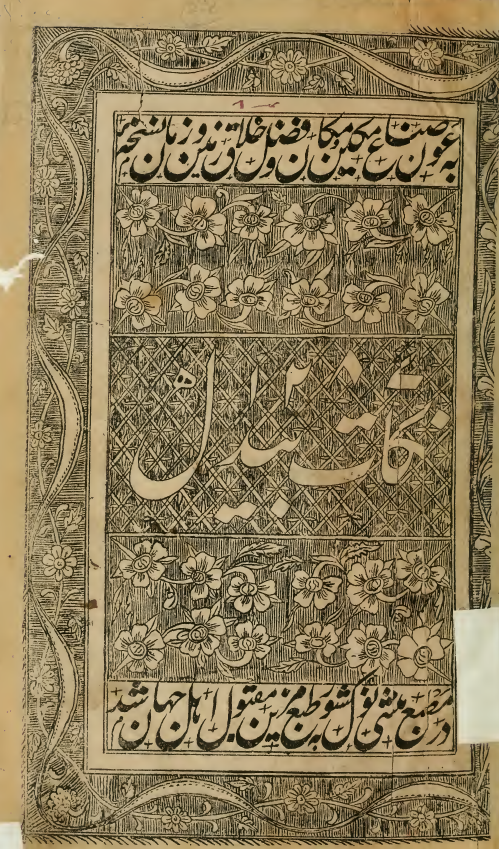 به عون صناع مکین و مکان و فضل خلاق زمین و زمان نسخه
نکات بیدل
در مطبع منشی نولکشور به طبع مزین مقبول اهل جهان شد